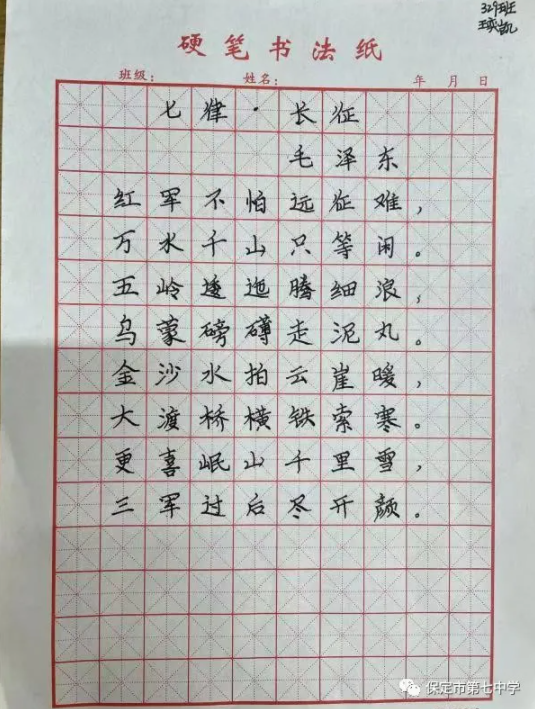 329班
王奕凯
硬笔书法纸
班级: 姓名: 年 月 日
七律·长征
毛泽东
红军不怕远征难,
万水千山只等闲。
五岭逶迤腾细浪,
乌蒙磅礴走泥丸。
金沙水拍云崖暖,
大渡桥横铁索寒。
更喜岷山千里雪,
三军过后尽开颜。
保定市第七中学